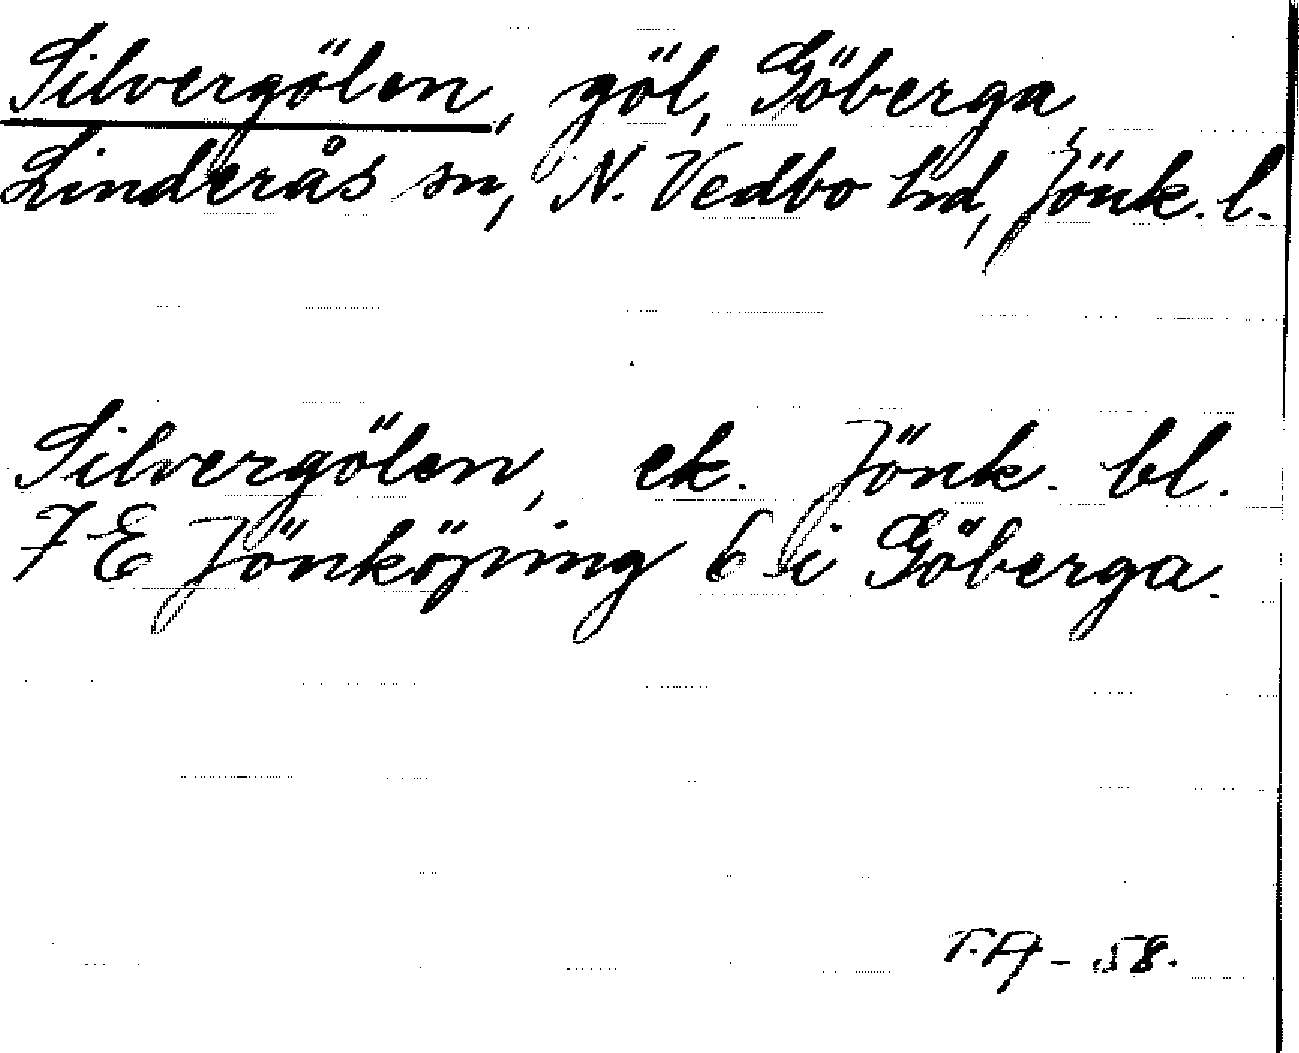 Silvergölen, göl, Göberga,
Linderås sn, N. Vedbo hd, Jönk. l.
Silvergölen, ek. Jönk. bl.
7 E Jönköping 6 i Göberga.
- 58.